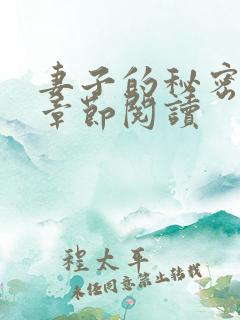 妻子的秘密
章節閱讀
程太平
未任同意禁止转载